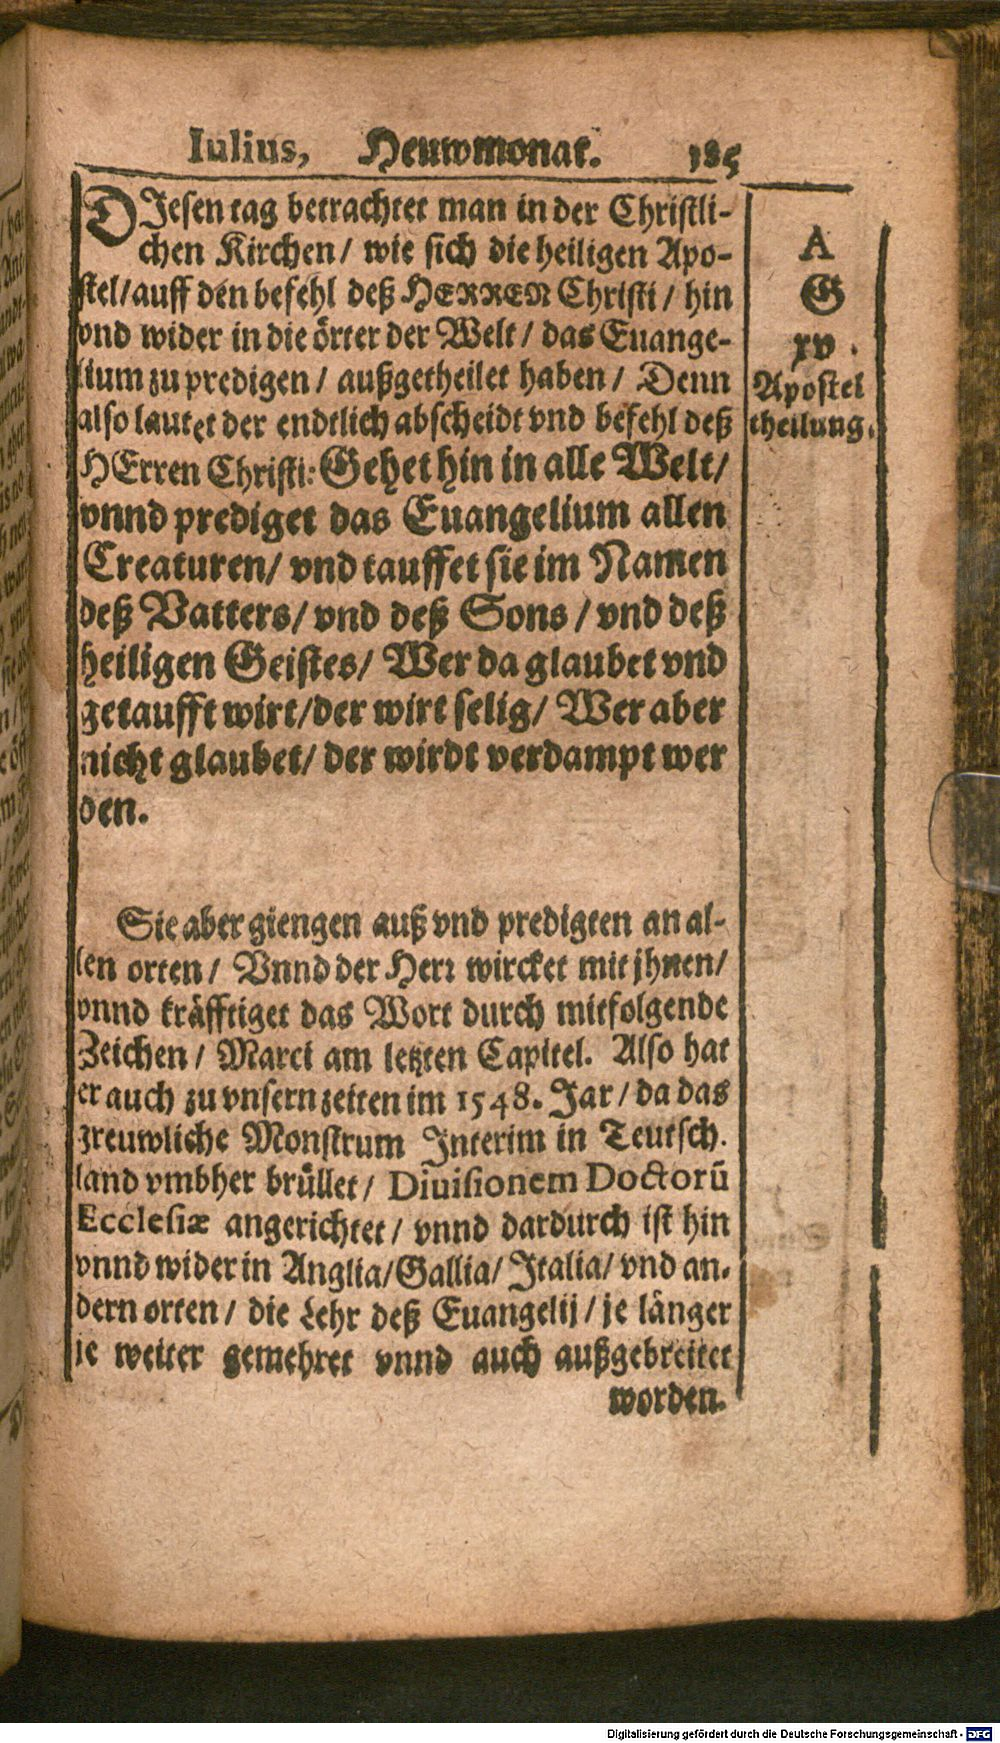 Iulius, Heuwmonat. 185
DJesen tag betrachtet man in der Christli-
chen Kirchen / wie sich die heiligen Apo-
stel/auff den befehl deß HERREN Christi / hin
vnd wider in die örter der Welt / das Euange-
lium zu predigen / außgetheilet haben / Denn
also lautet der endtlich abscheidt vnd befehl deß
HErren Christi: Gehet hin in alle Welt/
vnnd prediget das Euangelium allen
Creaturen/ vnd tauffet sie im Namen
deß Vatters/ vnd deß Sons / vnd deß
heiligen Geistes/ Wer da glaubet vnd
getaufft wirt/der wirt selig/ Wer aber
nicht glaubet/ der wirdt verdampt wer
den.
Sie aber giengen auß vnd predigten an al-
len orten / Vnnd der Herr wircket mit jhnen/
vnnd kräfftiget das Wort durch mitfolgende
Zeichen / Marci am letzten Capitel. Also hat
er auch zu vnsern zeiten im 1548. Jar / da das
greuwliche Monstrum Interim in Teutsch.
land vmbher brüllet / Diuisionem Doctorū
Ecclesiæ angerichtet / vnnd dardurch ist hin
vnnd wider in Anglia/Gallia/ Italia/ vnd an.
dern orten / die Lehr deß Euangelij / je länger
je weiter gemehret vnnd auch außgebreitet
worden.
A
G
xv .
Apostel
theilung.
Digitalisierung gefördert durch die Deutsche Forschungsgemeinschaft - DFG